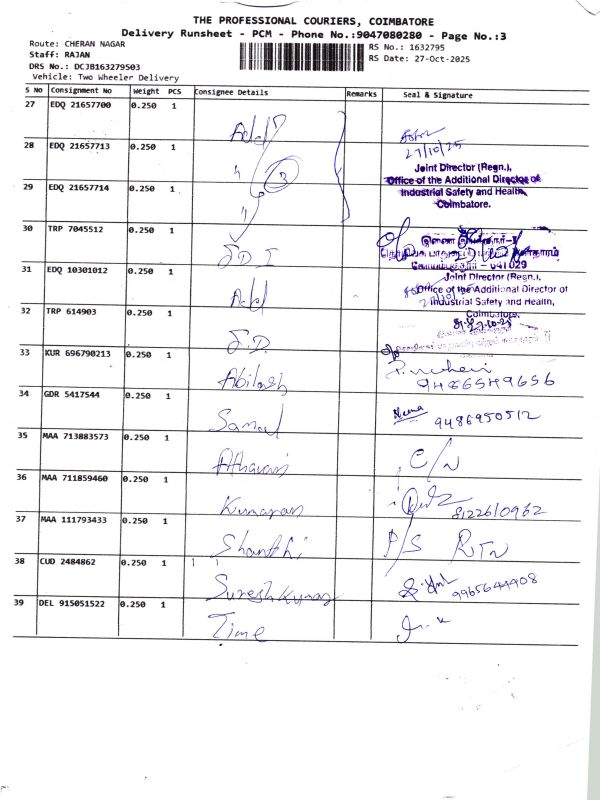 THE PROFESSIONAL COURIERS, COIMBATORE
Delivery Runsheet - PCM - Phone No.:9047080280 - Page No.:3
Route: CHERAN NAGAR
RS No.: 1632795
Staff: RAJAN
RS Date: 27-Oct-2025
DRS No.: DCJB163279503
Vehicle: Two Wheeler Delivery
S No Consignment No Weight PCS Consignee Details Remarks Seal & Signature
27 EDQ 21657700 0.250 1
28 EDQ 21657713 0.250 1
27/10/25
Joint Director (Regn.),
Office of the Additional Director of
29 EDQ 21657714 0.250 1
3
Industrial Safety and Health,
Coimbatore.
30 TRP 7045512 0.250 1 J.D. I
641029
31 EDQ 10301012 0.250 1 Addl
Joint Director (Regn.),
Office of the Additional Director of
Industrial Safety and Health,
Coimbatore.
32 TRP 614903 0.250 1 J.D.
33 KUR 696790213 0.250 1 Abilash
9486549656
34 GDR 5417544 0.250 1
9486950512
35 MAA 713883573 0.250 1 C/N
36 MAA 711859460 0.250 1 Kumaran
8122610962
37 MAA 111793433 0.250 1 Shanthi P/S RTN
38 CUD 2484862 0.250 1 Sureshkumar
9965644908
39 DEL 915051522 0.250 1 Time